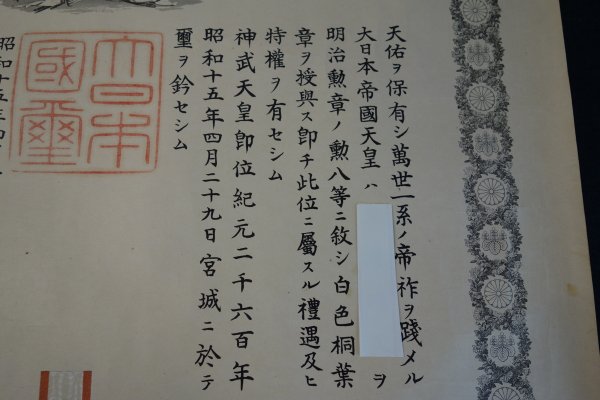 天佑ヲ保有シ萬世一系ノ帝祚ヲ踐メル
大日本帝國天皇ハ
ヲ
明治勲章ノ勲八等ニ敘シ白色桐葉
章ヲ授與ス卽チ此位ニ屬スル禮遇及ヒ
特權ヲ有セシム
神武天皇卽位紀元二千六百年
昭和十五年四月二十九日宮城ニ於テ
璽ヲ鈐セシム
大日本國璽
昭和十五年四